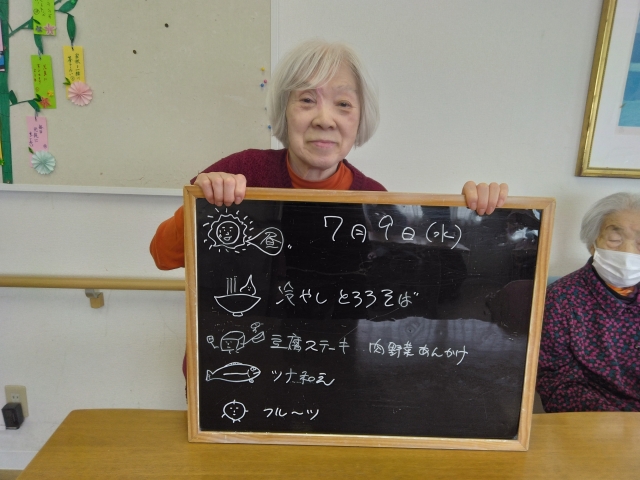 昼 7月9日(水)
冷やしとろろそば
豆腐ステーキ 肉野菜あんかけ
ツナ和え
フルーツ